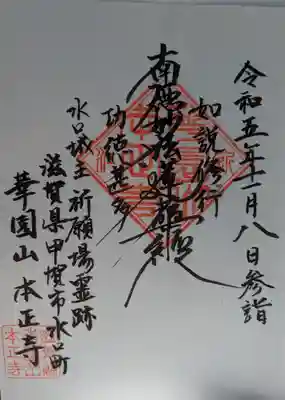 令和五年十一月八日参詣
如説修行
南無妙法蓮華経
功徳甚多
水口城主 祈願場霊跡
滋賀県甲賀市水口町
華園山 本正寺